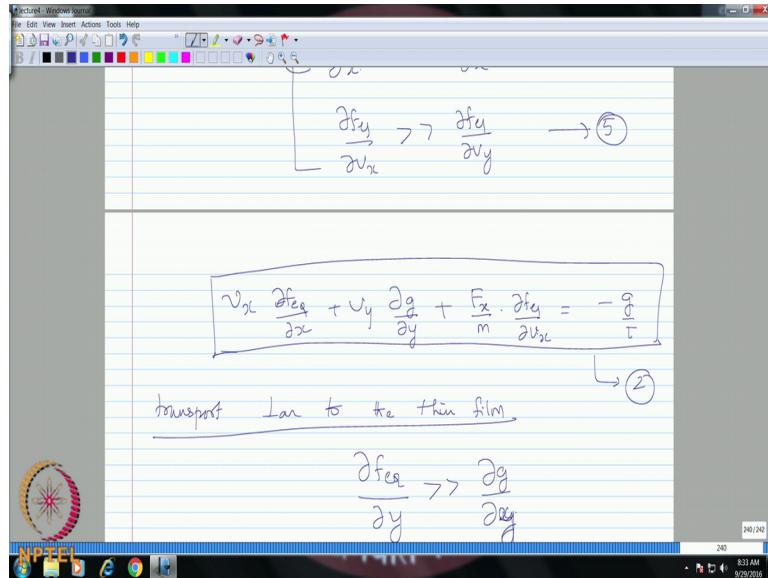 lecture4 - Windows Journal
File Edit View Insert Actions Tools Help
∂x
∂f_eq/∂v_x >> ∂f_eq/∂v_y → ⑤
v_x ∂f_eq/∂x + v_y ∂g/∂y + F_x/m · ∂f_eq/∂v_x = - g/τ
→ ②
transport Lar to the thin film
∂f_eq/∂y >> ∂g/∂y
NPTEL
240/242
240
8:33 AM
9/29/2016